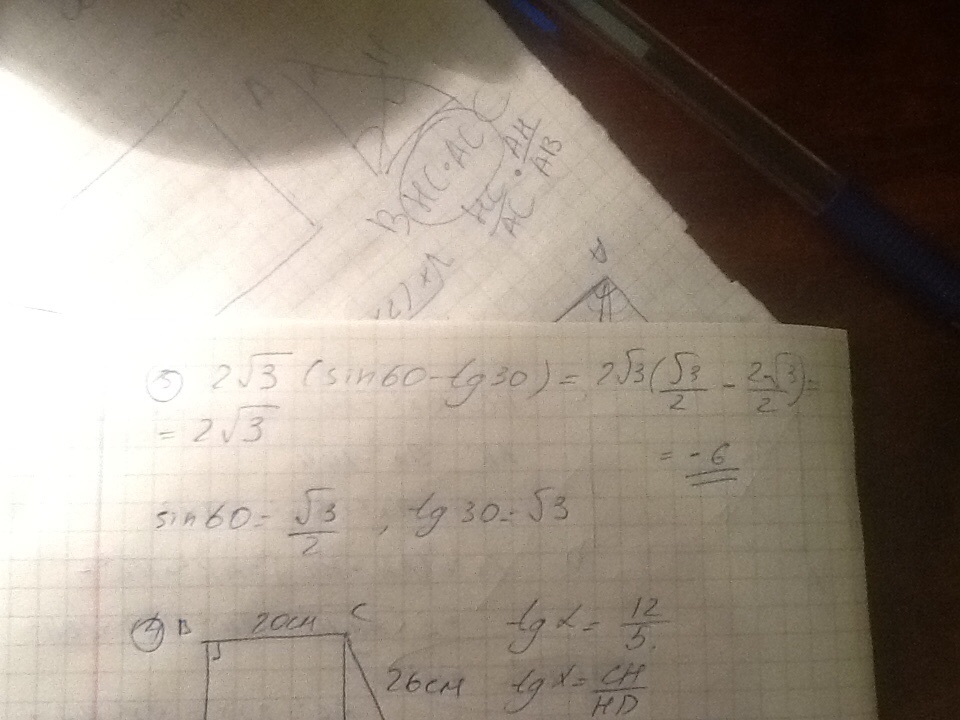 B HC·AC C
HC/AC · AH/AB
⑤ 2√3 (sin60-tg30) = 2√3(√3/2 - 2√3/2)=
= 2√3
= -6
sin60= √3/2 , tg30=√3
④ B 20см C
26см
tgα= 12/5.
tgα= CH/HD